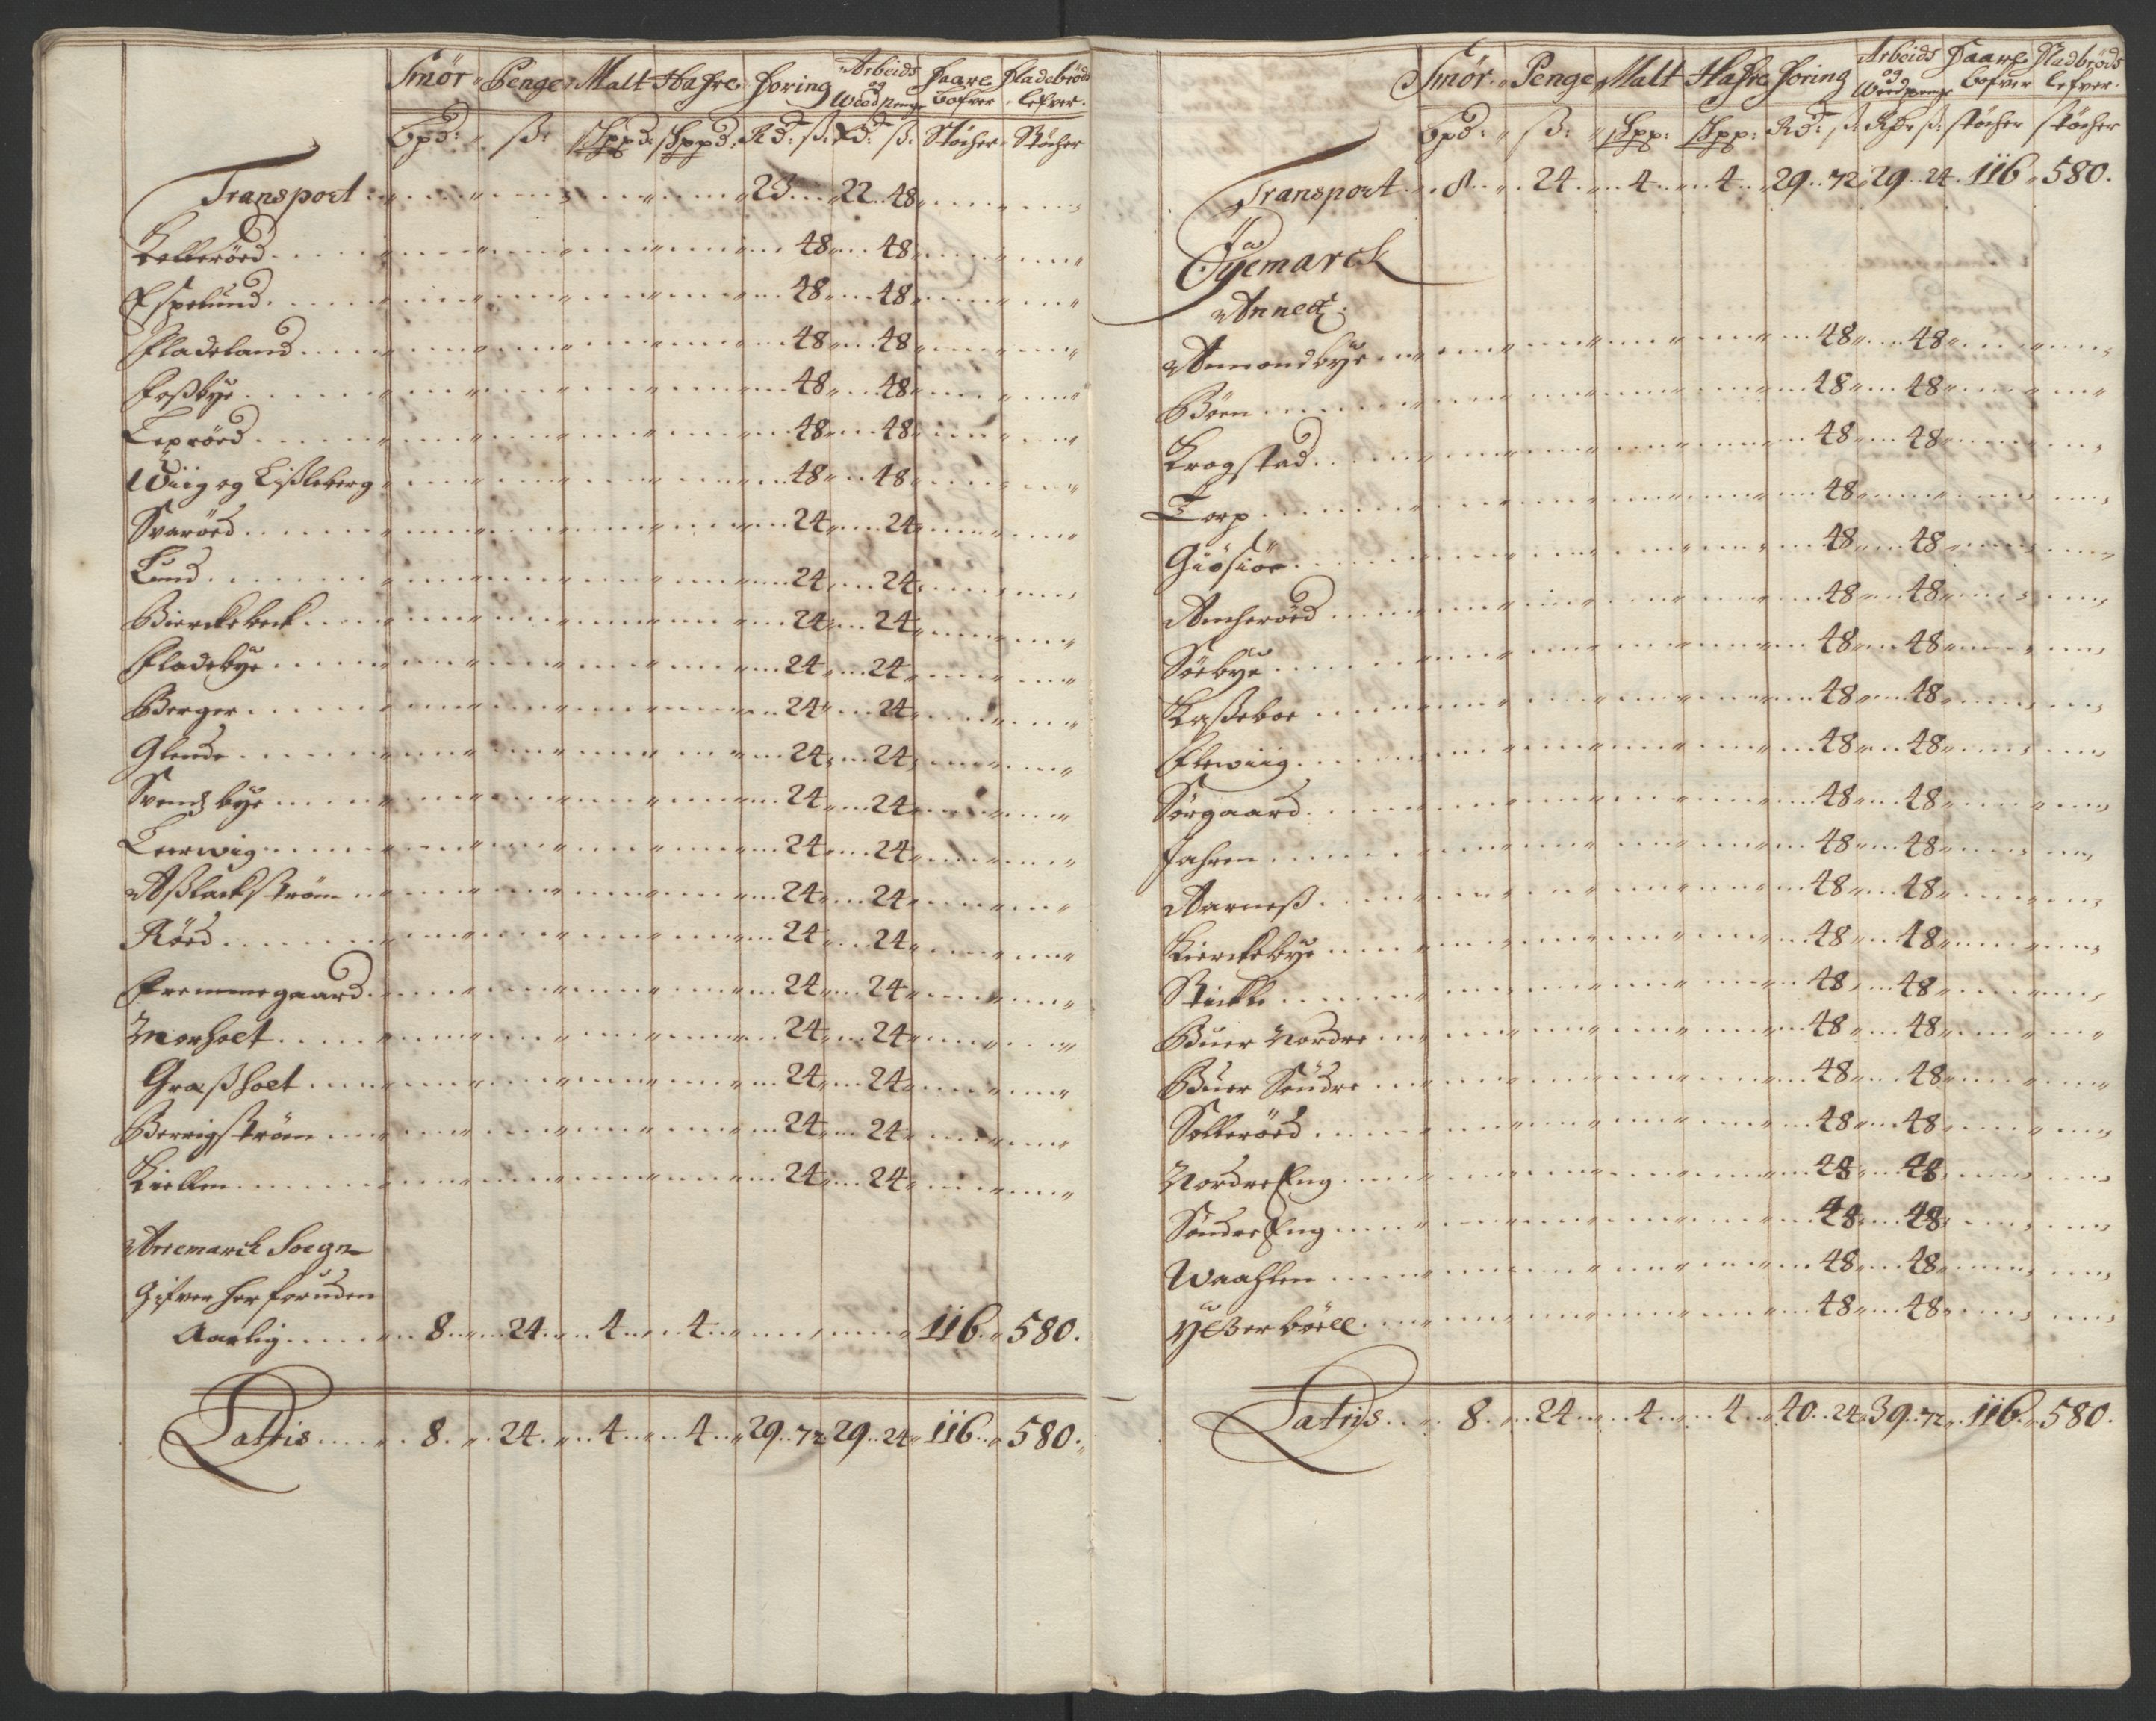 Smör Penge Malt Hafre Foring Arbeids og Weed penge Faare bofver Fladebröds lefver.
bpd: ß: Schppd: Schppd: Rd: ß: Rd: ß: Støcher Støcher
Transport 23 22 48
Kolleröed 48 48
Espelund 48 48
Fladeland 48 48
Foßbye 48 48
Lepröed 48 48
Wiig og Lißleberg 48 48
Svaröed 24 24
Lund 24 24
Bierckebeck 24 24
Fladebye 24 24
Berger 24 24
Glende 24 24
Svendsbye 24 24
Leerwig 24 24
Aßlackström 24 24
Röed 24 24
Fremmegaard 24 24
Morholt 24 24
Graßholt 24 24
Berrigström 24 24
Kiellen 24 24
Arremarck Sogn
Gifver her foruden
Aarlig 8 24 4 4 116 580.
Latris 8. 24. 4 4 29 72 29 24 116 580.
Smör Penge Malt Hafre Foring Arbeids og Weed penge Faare bofver Fladbröds lefver.
bpd: ß: Schpp: Schpp: Rd: ß: Rdr ß: støcher støcher
Transport 8 24 4 4 29 72 29 24 116 580.
Öyemarck
Annex:
Ammondbye 48 48
Böen 48 48
Krogstad 48 48
Torp 48
Giösiöe 48 48
Ancheröed 48 48
Söebye 48 48
Kaßeboe 48 48
Elewiig 48 48
Sörgaard 48 48
Jahren 48 48
Aarneß 48 48
Kierckebye 48 48
Stickle 48 48
Buer Nordre 48 48
Buer Sondre 48 48
Solleröed 48 48
Nordre Eng 48 48
Söndre Eng 48 48
Waahlen 48 48
Ytterböell 48 48
Latris 8. 24 4 4 40 24 39 72 116 580.